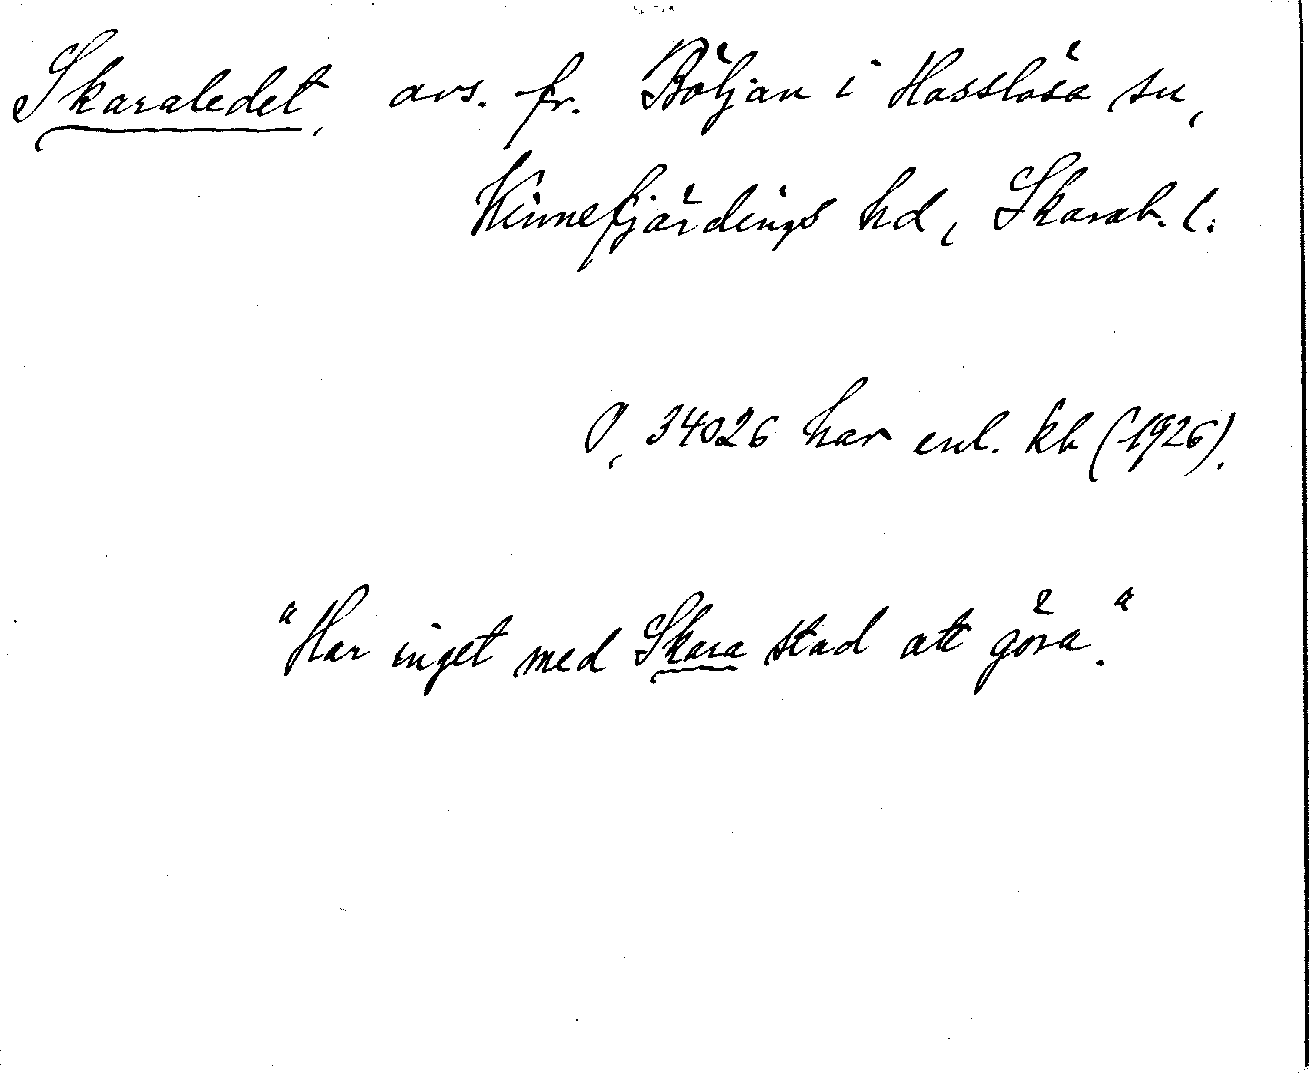 Skaraledet, avs. fr. Böljan i Hasslösa sn,
Kinnefjärdings hd, Skarab. l.
O, 34026 har enl. kb (1926).
"Har inget med Skara stad att göra."